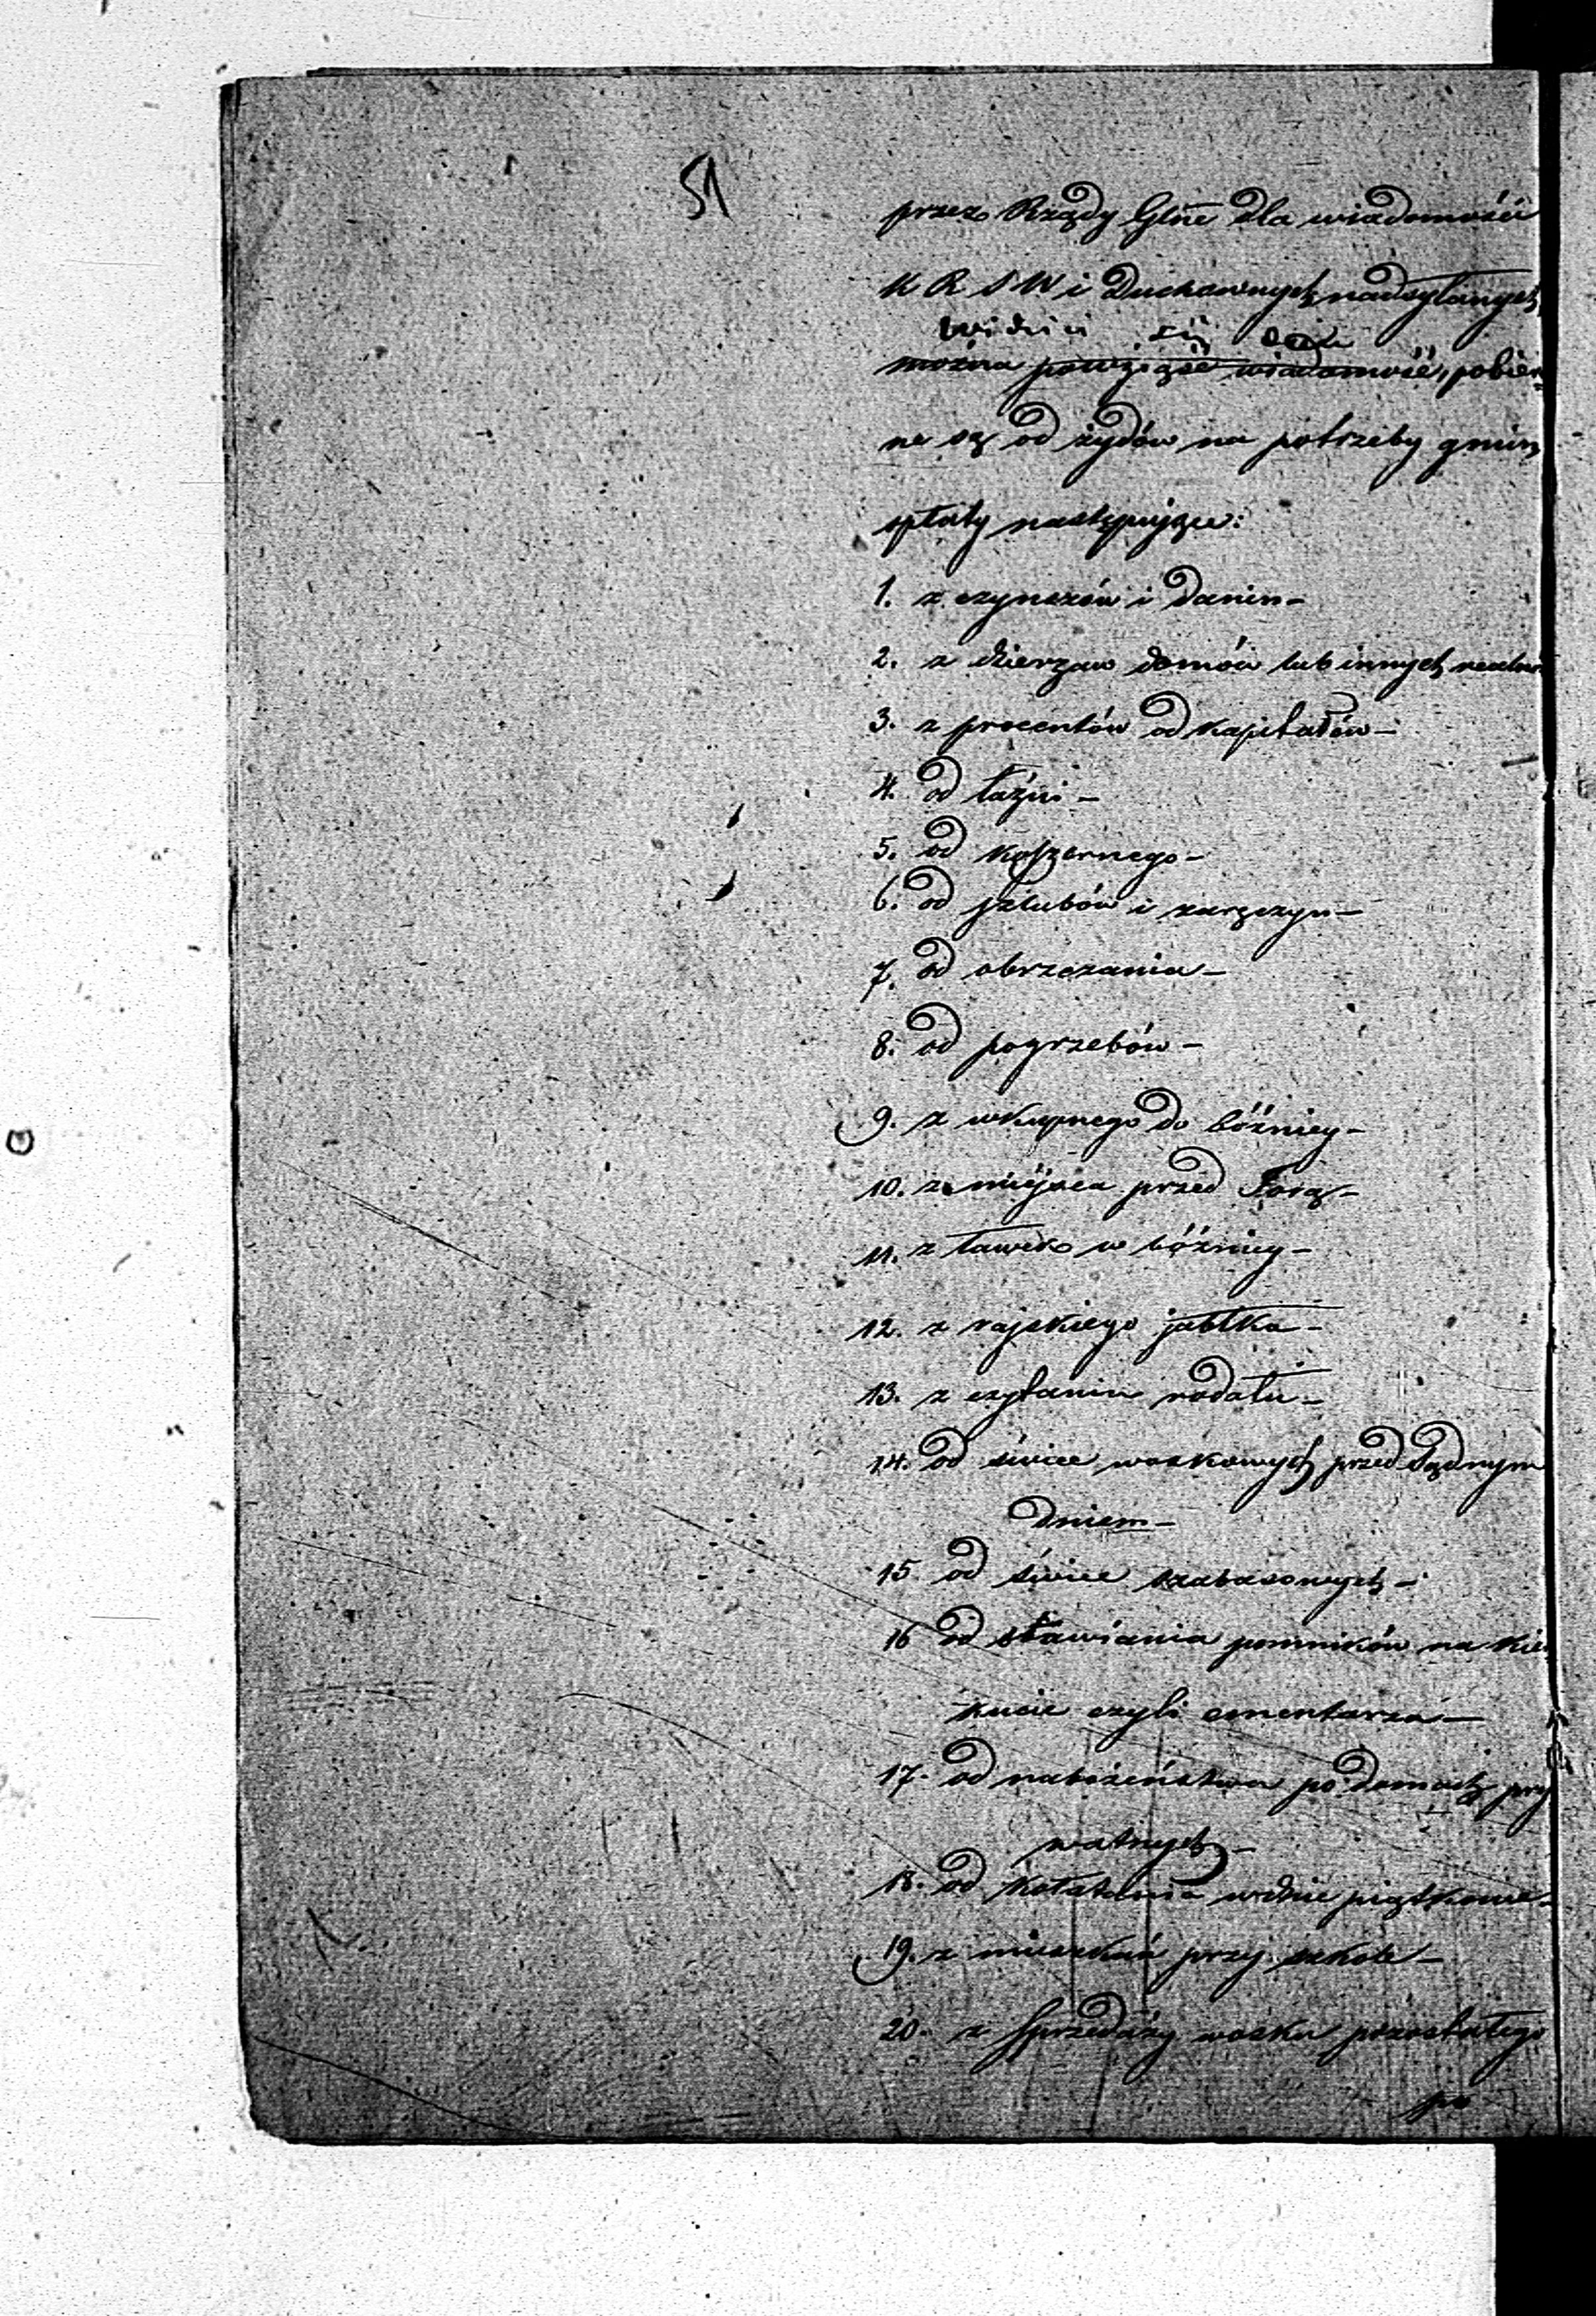 51
przez Rządy Glne dla wiadomości
K R S W i Duchownych nadsyłanych
widzieć się daie
można powziąść wiadomość, pobiera
ne są od żydów na potrzeby gmin
opłaty następujące:
1. z czynszów i danin –
2. z dzierzaw domów lub innych realno
3. z procentów od kapitałów –
4. od łaźni –
5. od koszernego –
6. od szlubów i zaręczyn –
7. od obrzezania –
8. od pogrzebów –
9. z wkupnego do bóźnicy –
10. z miejsca przed Torą –
11. z ławek w bóźnicy –
12. z rajskiego jabłka –
13. z czytania rodału –
14. od świec woskowych przed Sądnym
dniem –
15 od świec szabasowych –
16 od stawiania pomników na kir
kucie czyli cmentarza –
17. od nabożeństwa po domach pry
watnych –
18. od kołatania w dnie piątkowe –
19. z mieszkań przy szkole –
20. z sprzedaży wosku pozostałego
po